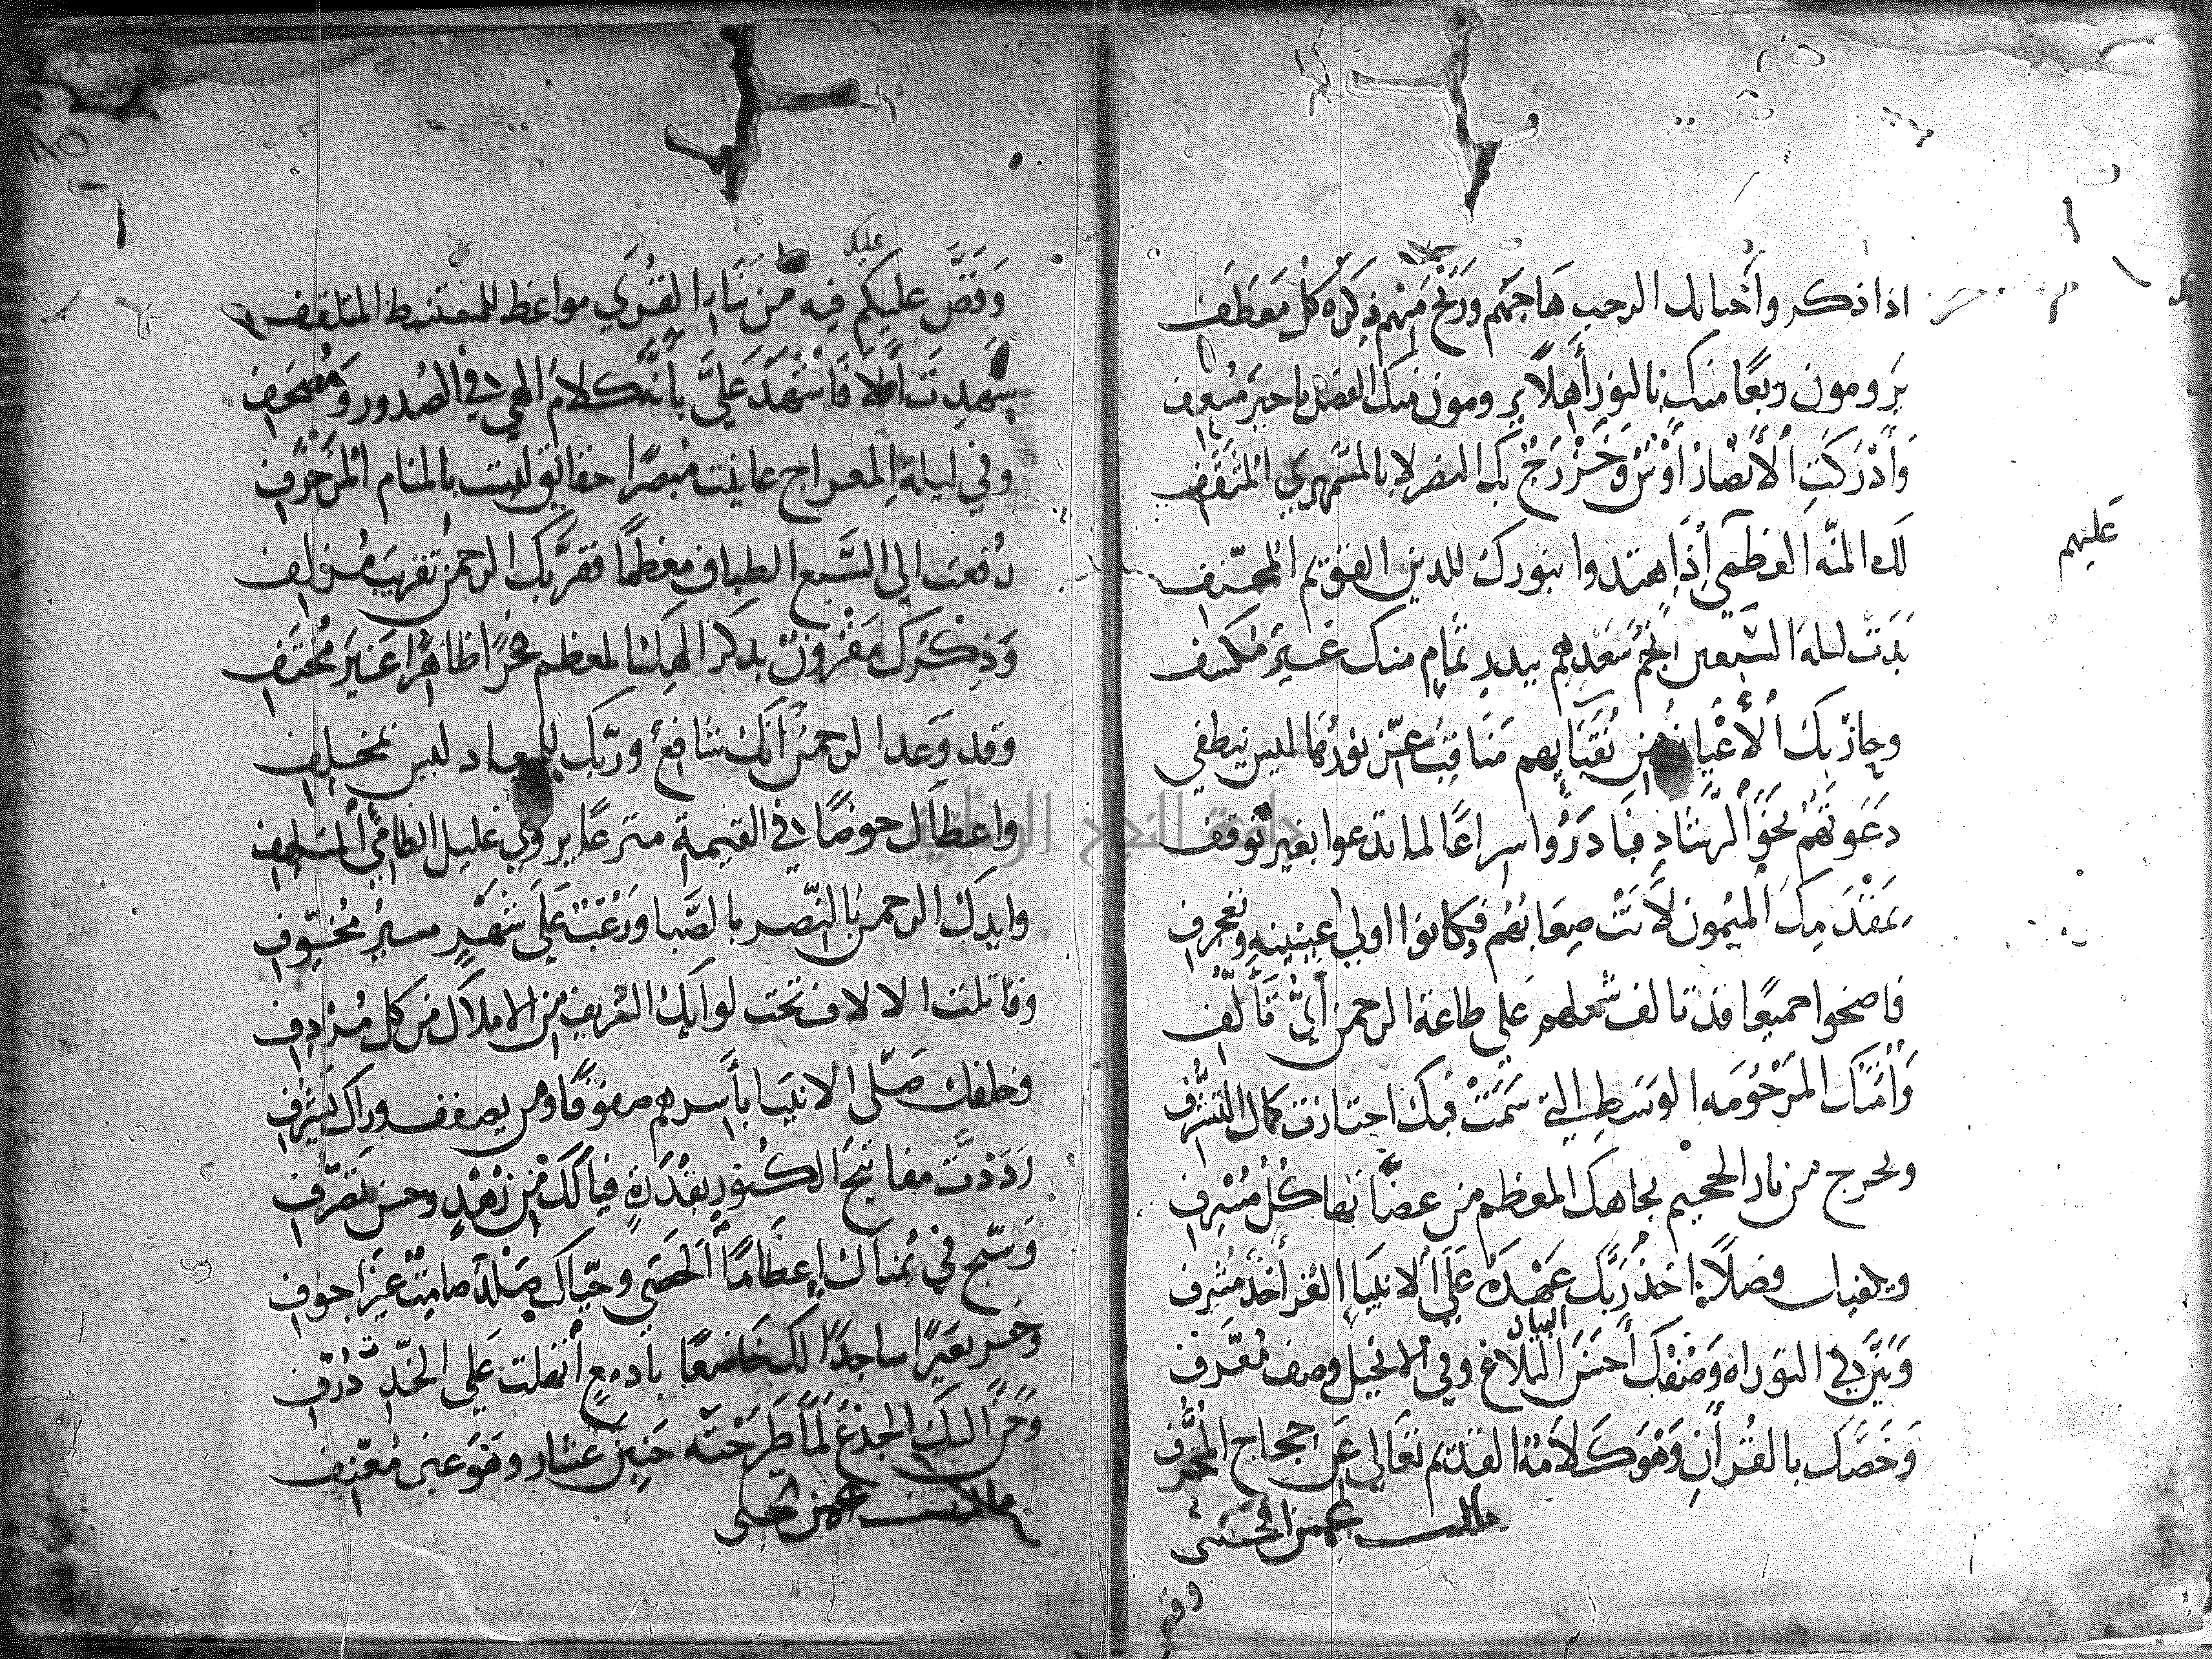 اذا ذكروا أحبابك الرحب هاجهم ورنح منهم ذكره كل معطف
يرومون ربعا منك بالنور أهلا يرومون منك الفضل يا خير مسعف
وأدركت الأنصار أوس وخزرج بك النصر لا بالسمهري المثقف
لك المنة العظمى إذا اهتدوا بنورك للدين القويم المحنف
عليهم
بدت ليلة السبعين أنجم سعدهم ببدر تمام منك غير مكسف
وحاز بك الأعيان من نقبايهم مناقب عز نورها ليس ينطفي
دعوتهم نحو الرشاد فبادروا سراعا لما تدعوا بغير توقف
بمقدمك الميمون لانت صعابهم وكانوا اولي عبيبة وتعجرف
فاضحوا جميعا قد تالف شملهم على طاعة الرحمن أي تألف
وأمتك المرحومه الوسط التي سمت فبك احتازت كمال التشرف
ويخرج من نار الجحيم بجاهك المعظم من عصاتها كل مسرف
ويكفيك فضلا اخذ ربك عهده على الانبيا الغر أخذ مشرف
وبين في التوراة وصفك أحسن البلاغ وفي الانجيل وصف معرف
البيان
وخصك بالقرآن وهو كلامه القديم تعالى عن حجاج المحرف
وقص
وقص عليكم فيه من نباء القرى مواعظ للمستنبط المتلقف
عليك
شهدت فاشهد علي بأنه كلام الهي في الصدور ومصحف
وفي ليلة المعراج عاينت مبصرا حقايق ليست بالمنام المزخرف
رفعت الى السبع الطباق معظما فقربك الرحمن تقريب مزلف
وذكرك مقرون بذكر الهك المعظم فخرا ظاهرا غير مختف
وقد وعد الرحمن أنك شافع وربك للميعاد ليس بمخلف
واعطاك حوضا في القيمة مترعا يروي غليل الظامئ المتلهف
وايدك الرحمن بالنصر بالصبا ورعب على شهر مسير مخوف
وقاتلت الالاف تحت لوايك الشريف من الاملاك من كل مردف
وخلفك صلى الانبيا بأسرهم صفوفا ومن يصفف وراك يشرف
رددت مفاتيح الكنوز بقدرة فيالك من زهد وحسن تصرف
وسبح في يمناك إعظاما الحصى وحياك صلد صامت غير اجوف
وخر بعير ساجدا لك خاضعا بادمع أنهلت على الخد ذرف
وحن اليك الجذع لما طرحته حنين عشار وهو غير معنف